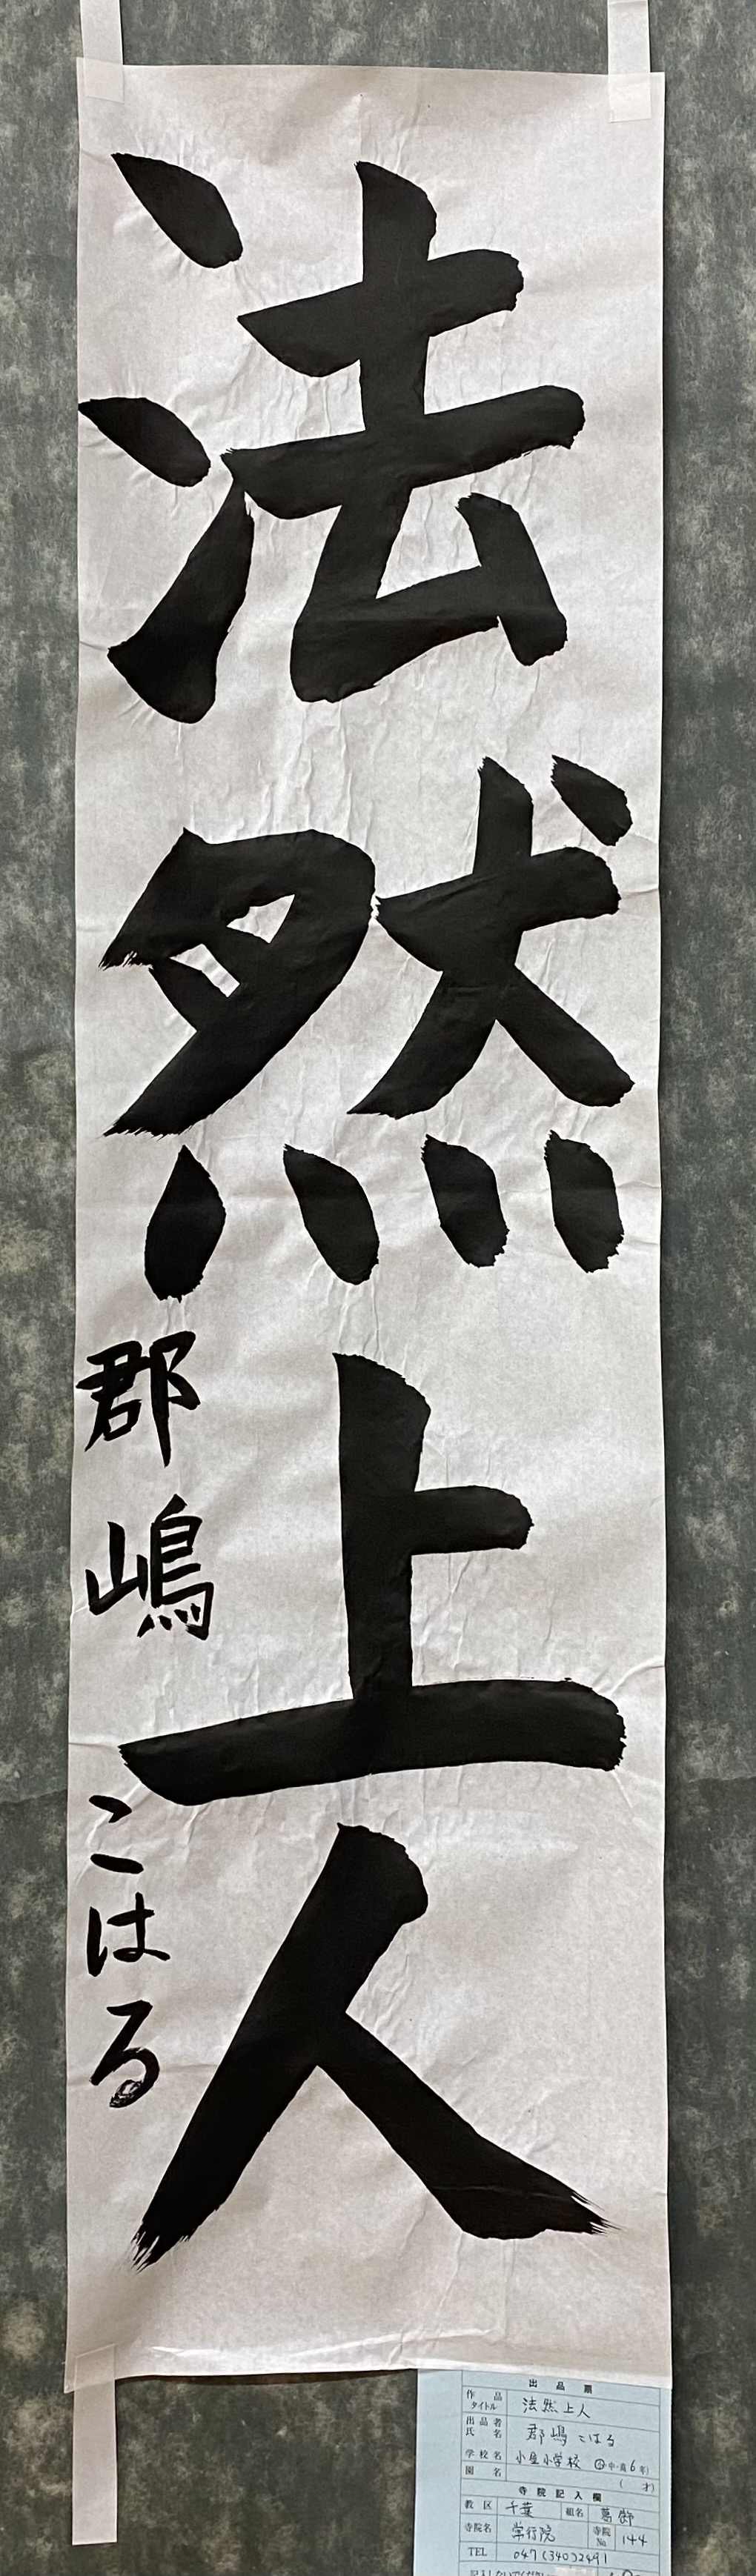 法然上人
郡嶋 こはる
出品票
作品タイトル 法然上人
出品者氏名 郡嶋 こはる
学校名 小学校 小・中・高 6年
園名 ( 才)
寺院記入欄
教区 千葉 組名 葛飾
寺院名 学行院 寺院No 144
TEL 047(340)2491